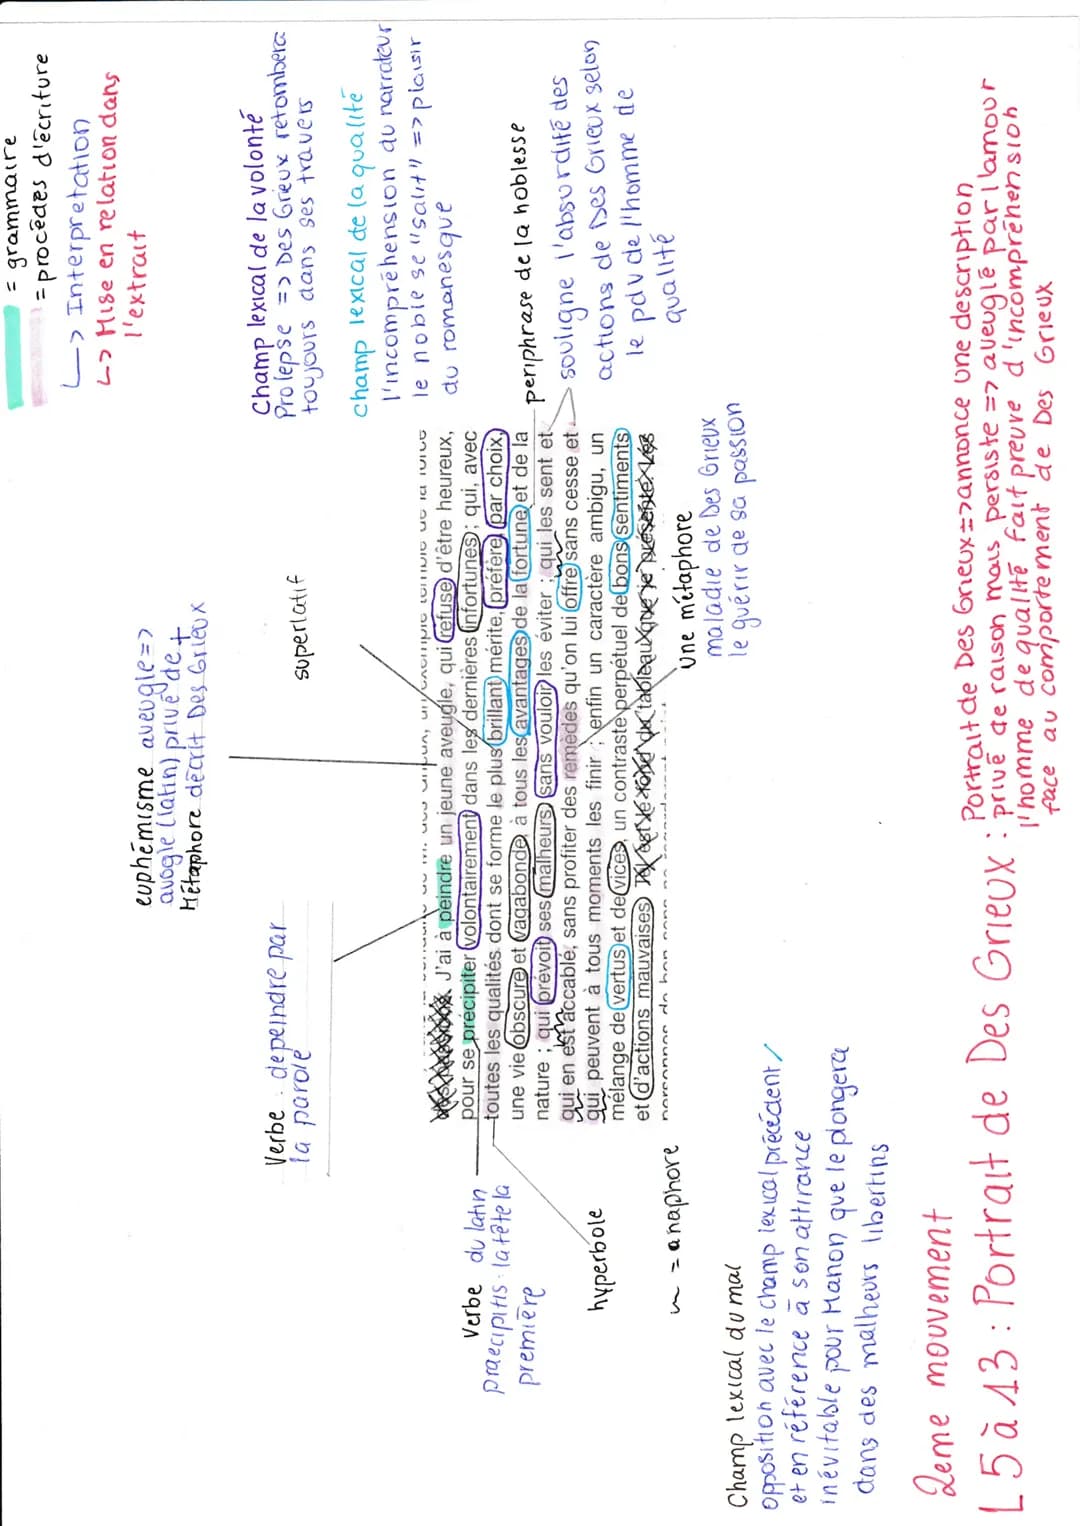 = grammaire
= procédés d'écriture
↳ Interpretation
↳ Mise en relation dans
l'extrait
euphémisme aveugle =>
avogle (latin) privé de
Métaphore décrit Des Grieux
superlatif
Verbe : depeindre par
la parole
Champ lexical de la volonté
Prolepse => Des Grieux retombera
toujours dans ses travers
champ lexical de la qualité
l'incompréhension du narrateur
le noble se "salit" => plaisir
du romanesque
periphrase de la noblesse
souligne l'absurdité des
actions de Des Grieux selon
le pdv de l'homme de
qualité
J'ai à peindre un jeune aveugle, qui refuse d'être heureux,
pour se précipiter volontairement dans les dernières infortunes ; qui, avec
toutes les qualités dont se forme le plus brillant mérite, préfère, par choix,
une vie obscure et vagabonde, à tous les avantages de la fortune et de la
nature ; qui prévoit ses malheurs, sans vouloir les éviter ; qui les sent et
qui en est accablé, sans profiter des remèdes qu'on lui offre sans cesse et
qui peuvent à tous moments les finir ; enfin un caractère ambigu, un
mélange de vertus et de vices, un contraste perpétuel de bons sentiments
et d'actions mauvaises. Tel est le fond du tableau que je présente. Les
Verbe du latin
praecipitis : la tête la
première
hyperbole
= anaphore
Une métaphore
maladie de Des Grieux
le guérir de sa passion
Champ lexical du mal
opposition avec le champ lexical précédent
et en référence à son attirance
inévitable pour Manon que le plongera
dans des malheurs libertins
2eme mouvement
L 5 à 13 : Portrait de Des Grieux :
Portrait de Des Grieux => annonce une description
privé de raison mais persiste => aveuglé par l'amour
l'homme de qualité fait preuve d'incompréhension
face au comportement de Des Grieux